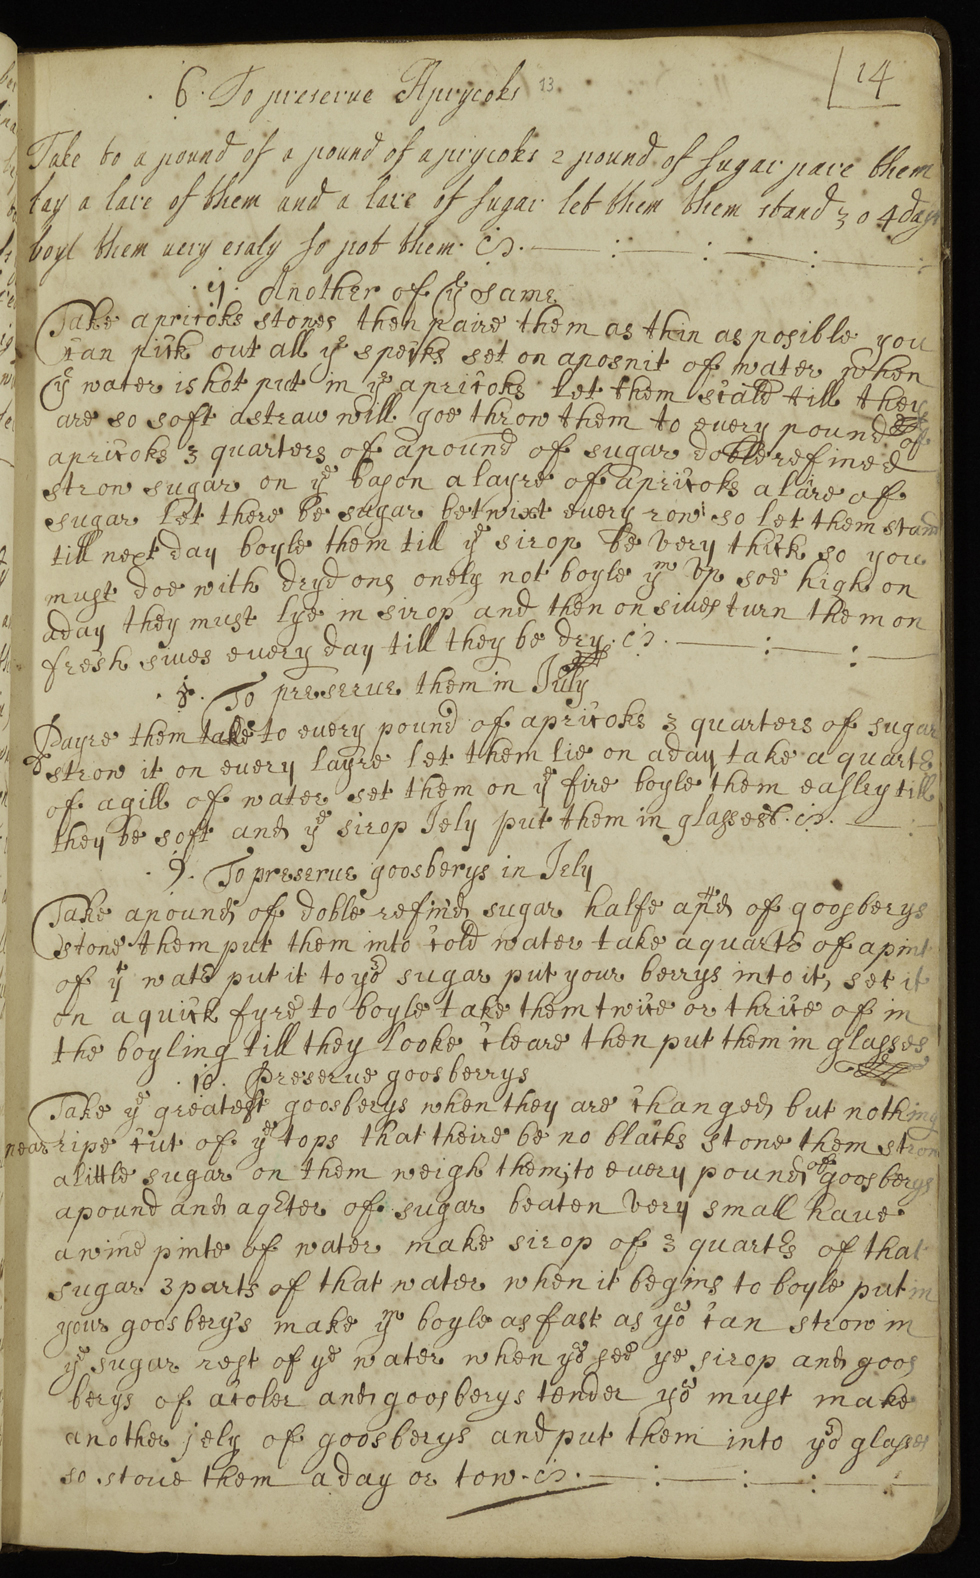 6. To preserve Aprycoks 13
14
Take to a pound of a pound of aprycoks 2 pound of sugar pare them
lay a lare of them and a lare of sugar let them them stand 3 o 4 days
boyl them very esaly so pot them.
7. Another of ye same
Take apricoks stones then paire them as thin as posible you
can pick out all ye specks set on aposnit of water when
ye water is hot put in ye apricoks let them scald till they
are so soft a straw will goe throw them to every pound of
apricoks 3 quarters of apound of sugar doble refined
strow sugar on ye bason a layre of apricoks a lare of
sugar let there be sugar betwixt every row so let them stand
till next day boyle them till ye sirop be very thick so you
must doe with dryd ons onely not boyle ym vp soe high on
aday they must lye in sirop and then on sives turn them on
fresh sives every day till they be dry.
8. To preserve them in July
Payre them take to every pound of apricoks 3 quarters of sugar
strow it on every layre let them lie on aday take a quarter
of agill of water set them on ye fire boyle them easley till
they be soft and ye sirop Jely put them in glasses.
9. To preserve goosberys in Jely
Take apound of doble refind sugar halfe a pnd of goosberys
stone them put them into cold water take a quarter of apint
of ye water put it to yor sugar put your berrys into it, set it
on a quick fyre to boyle take them twice or thrice of in
the boyling till they looke cleare then put them in glasses
10. Preserve goosberrys
Take ye greatest goosberys when they are changed but nothing
near ripe cut of ye tops that theire be no blacks stone them strow
a little sugar on them weigh them; to every pound of goosberys
apound and aqter of sugar beaten very small have
a wine pinte of water make sirop of 3 quarters of that
sugar 3 parts of that water when it begins to boyle put in
your goosberys make ym boyle as fast as you can strow in
ye sugar rest of ye water when you see ye sirop and goos
berys of acoler and goosberys tender you must make
another jely of goosberys and put them into yor glasses
so stove them aday or tow.